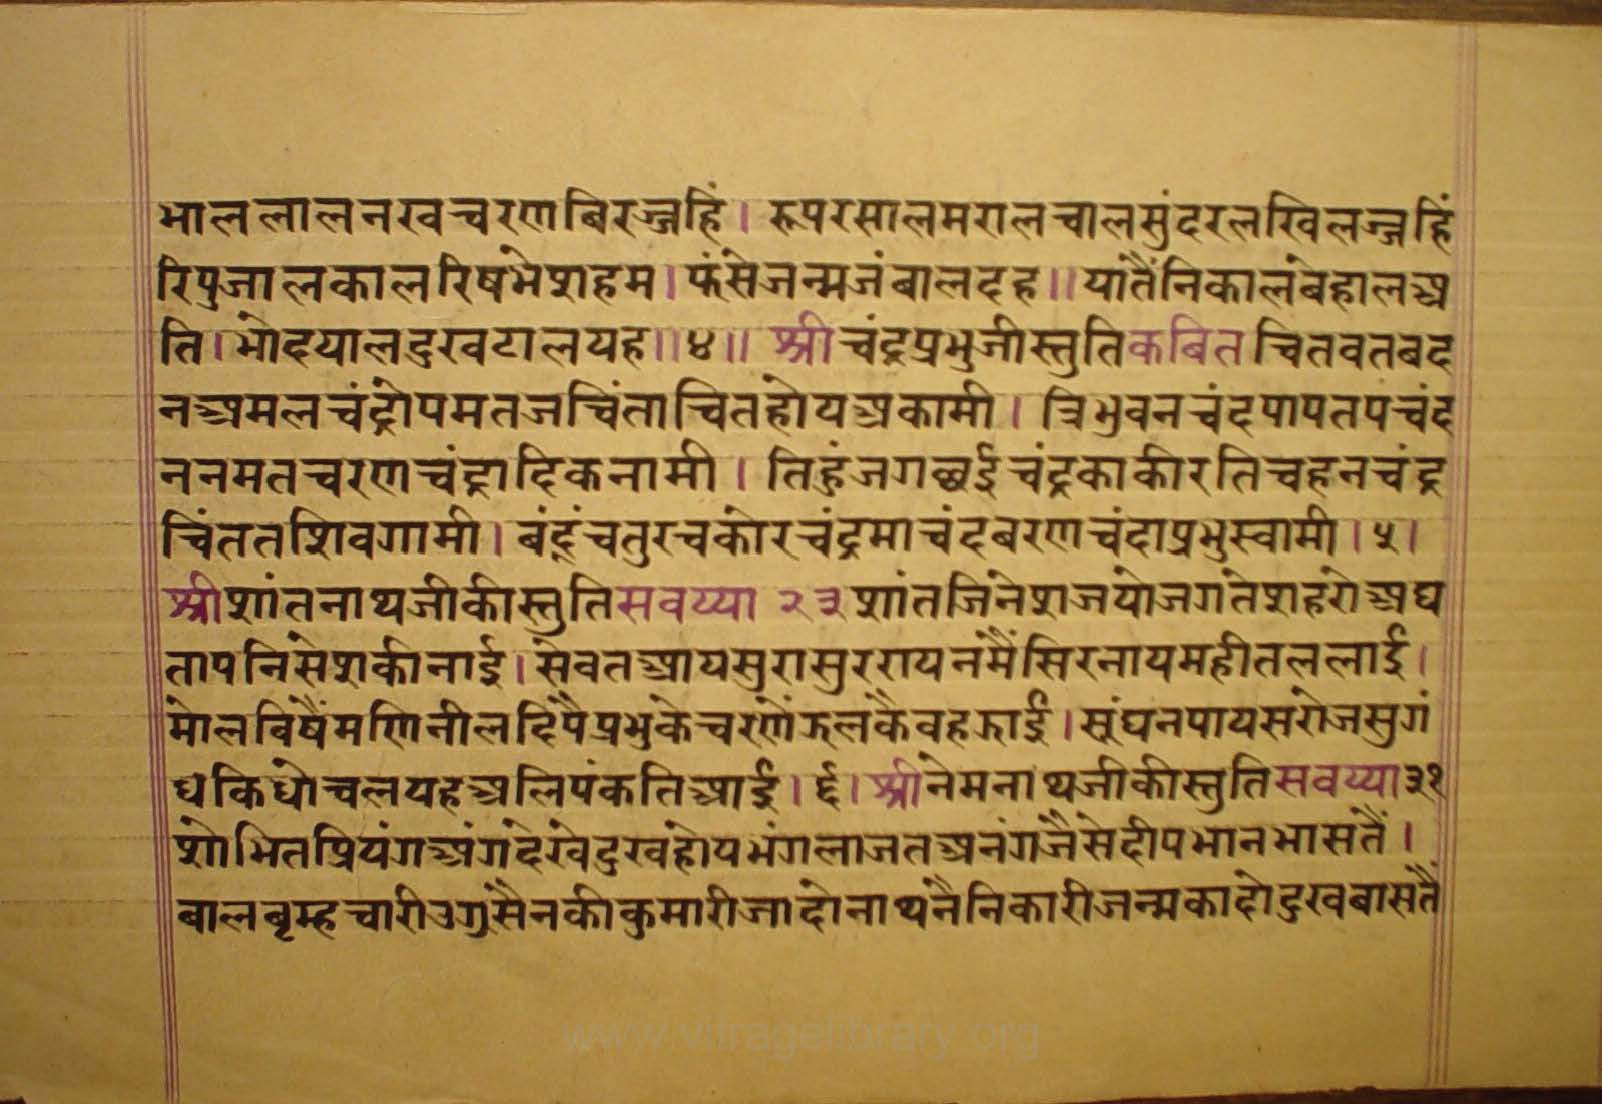 भाललालनखचरणबिरज्जहिं। रूपरसालमरालचालसुंदरलखिलज्जहिं
रिपुजालकालरिषभेशहम।फंसेजन्मजंबालदह॥यातैंनिकालंबेहालअ
ति।भोदयालदुखटालयह॥४॥ श्रीचंद्रप्रभुजीस्तुतिकबितचितवतबद
नअमलचंद्रोपमतजचिंताचितहोयअकामी। त्रिभुवनचंदपापतपचंद
ननमतचरणचंद्रादिकनामी। तिहुंजगछईचंद्रकाकीरतिचहनचंद्र
चिंततशिवगामी। बंदूंचतुरचकोरचंद्रमाचंदबरणचंदाप्रभुस्वामी।५।
श्रीशांतनाथजीकीस्तुतिसवय्या २३शांतजिनेशजयोजगतेशहरोअघ
तापनिसेशकीनाई।सेवतआयसुरासुररायनमैंसिरनायमहीतललाई।
मोलविषैंमणिनीलदिपैप्रभुकेचरणेंझलकैवहझाई।सूंघनपायसरोजसुगं
धकिधोचलयहअलिपंकतिआई।६।श्रीनेमनाथजीकीस्तुतिसवय्या३१
शोभितप्रियंगअंगदेखेदुखहोयभंगलाजतअनंगजैसेदीपभानभासतैं।
बालबृम्हचारीउग्रसैनकीकुमारीजादोनाथनैनिकारीजन्मकादोदुखबासतैं
www.vitragelibrary.org